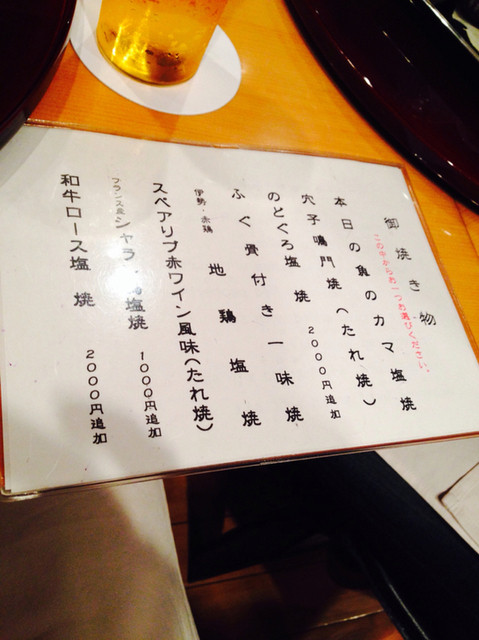 御焼き物
この中からお一つお選びください。
本日の魚のカマ塩焼
穴子鳴門焼(たれ焼)
のどぐろ塩焼 2000円追加
ふぐ骨付き一味焼
伊勢・赤鶏 地鶏塩焼
スペアリブ赤ワイン風味(たれ焼)
フランス産シャラン鴨塩焼 1000円追加
和牛ロース塩焼 2000円追加